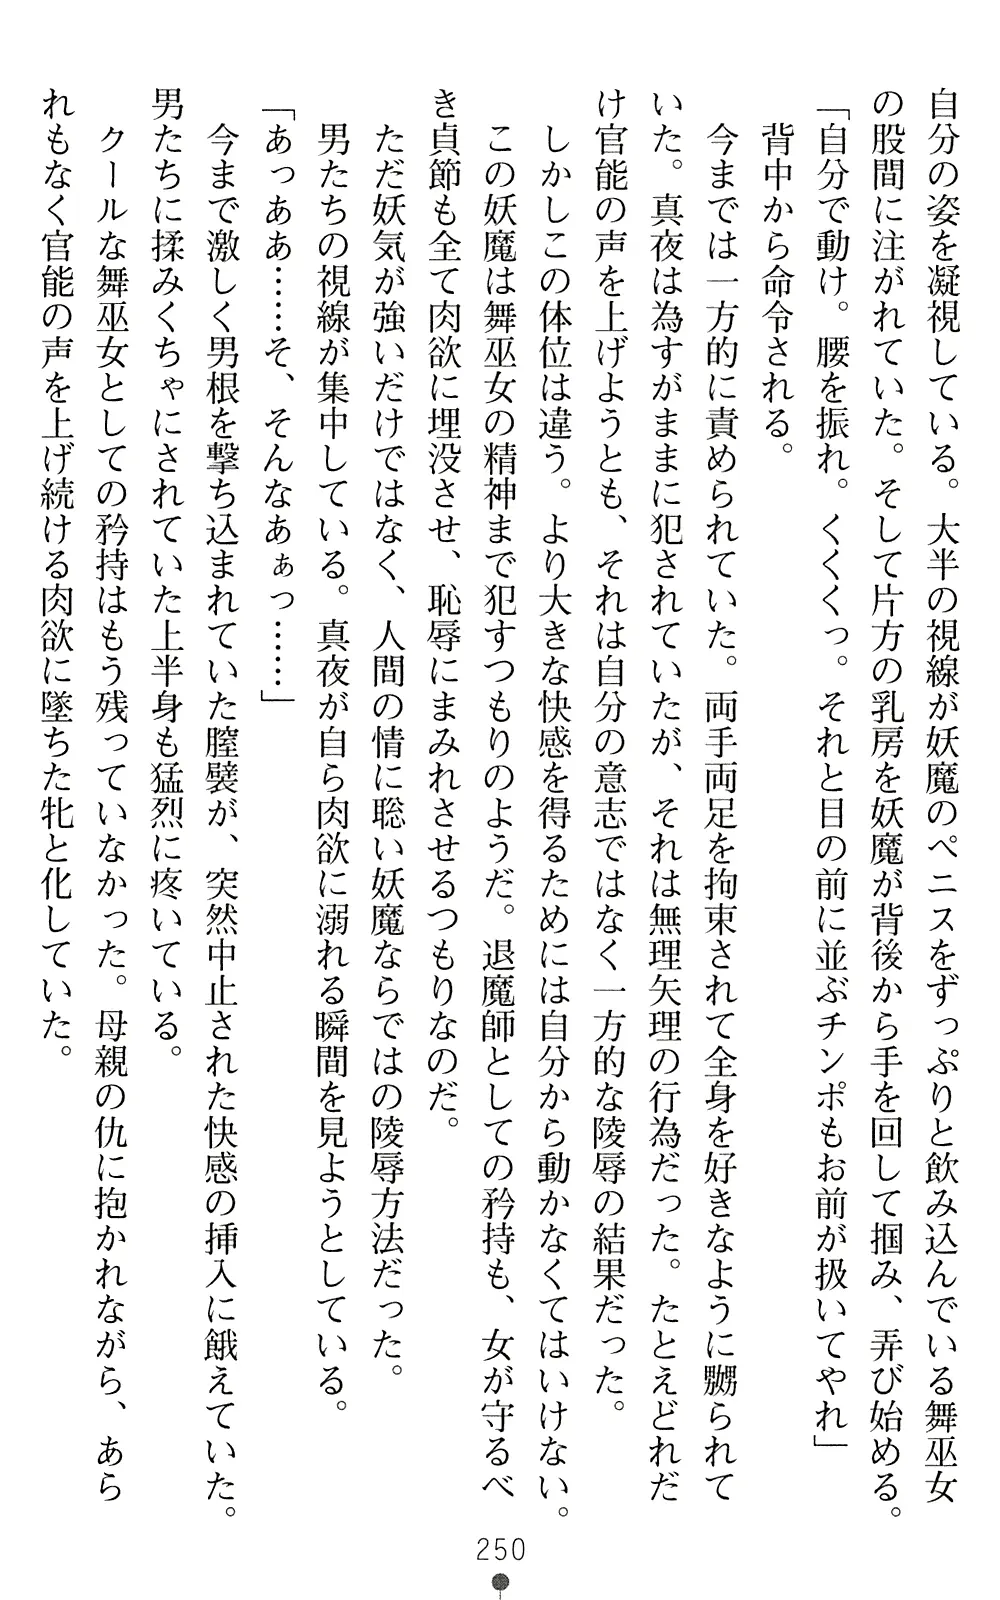 自分の姿を凝視している。大半の視線が妖魔のペニスをずっぷりと飲み込んでいる舞巫女
の股間に注がれていた。そして片方の乳房を妖魔が背後から手を回して掴み、弄び始める。
「自分で動け。腰を振れ。くくくっ。それと目の前に並ぶチンポもお前が扱いてやれ」
　背中から命令される。
　今までは一方的に責められていた。両手両足を拘束されて全身を好きなように嬲られて
いた。真夜は為すがままに犯されていたが、それは無理矢理の行為だった。たとえどれだ
け官能の声を上げようとも、それは自分の意志ではなく一方的な陵辱の結果だった。
　しかしこの体位は違う。より大きな快感を得るためには自分から動かなくてはいけない。
　この妖魔は舞巫女の精神まで犯すつもりのようだ。退魔師としての矜持も、女が守るべ
き貞節も全て肉欲に埋没させ、恥辱にまみれさせるつもりなのだ。
　ただ妖気が強いだけではなく、人間の情に聡い妖魔ならではの陵辱方法だった。
　男たちの視線が集中している。真夜が自ら肉欲に溺れる瞬間を見ようとしている。
「あっああ……そ、そんなあぁっ……」
　今まで激しく男根を撃ち込まれていた膣襞が、突然中止された快感の挿入に餓えていた。
男たちに揉みくちゃにされていた上半身も猛烈に疼いている。
　クールな舞巫女としての矜持はもう残っていなかった。母親の仇に抱かれながら、あら
れもなく官能の声を上げ続ける肉欲に墜ちた牝と化していた。
250